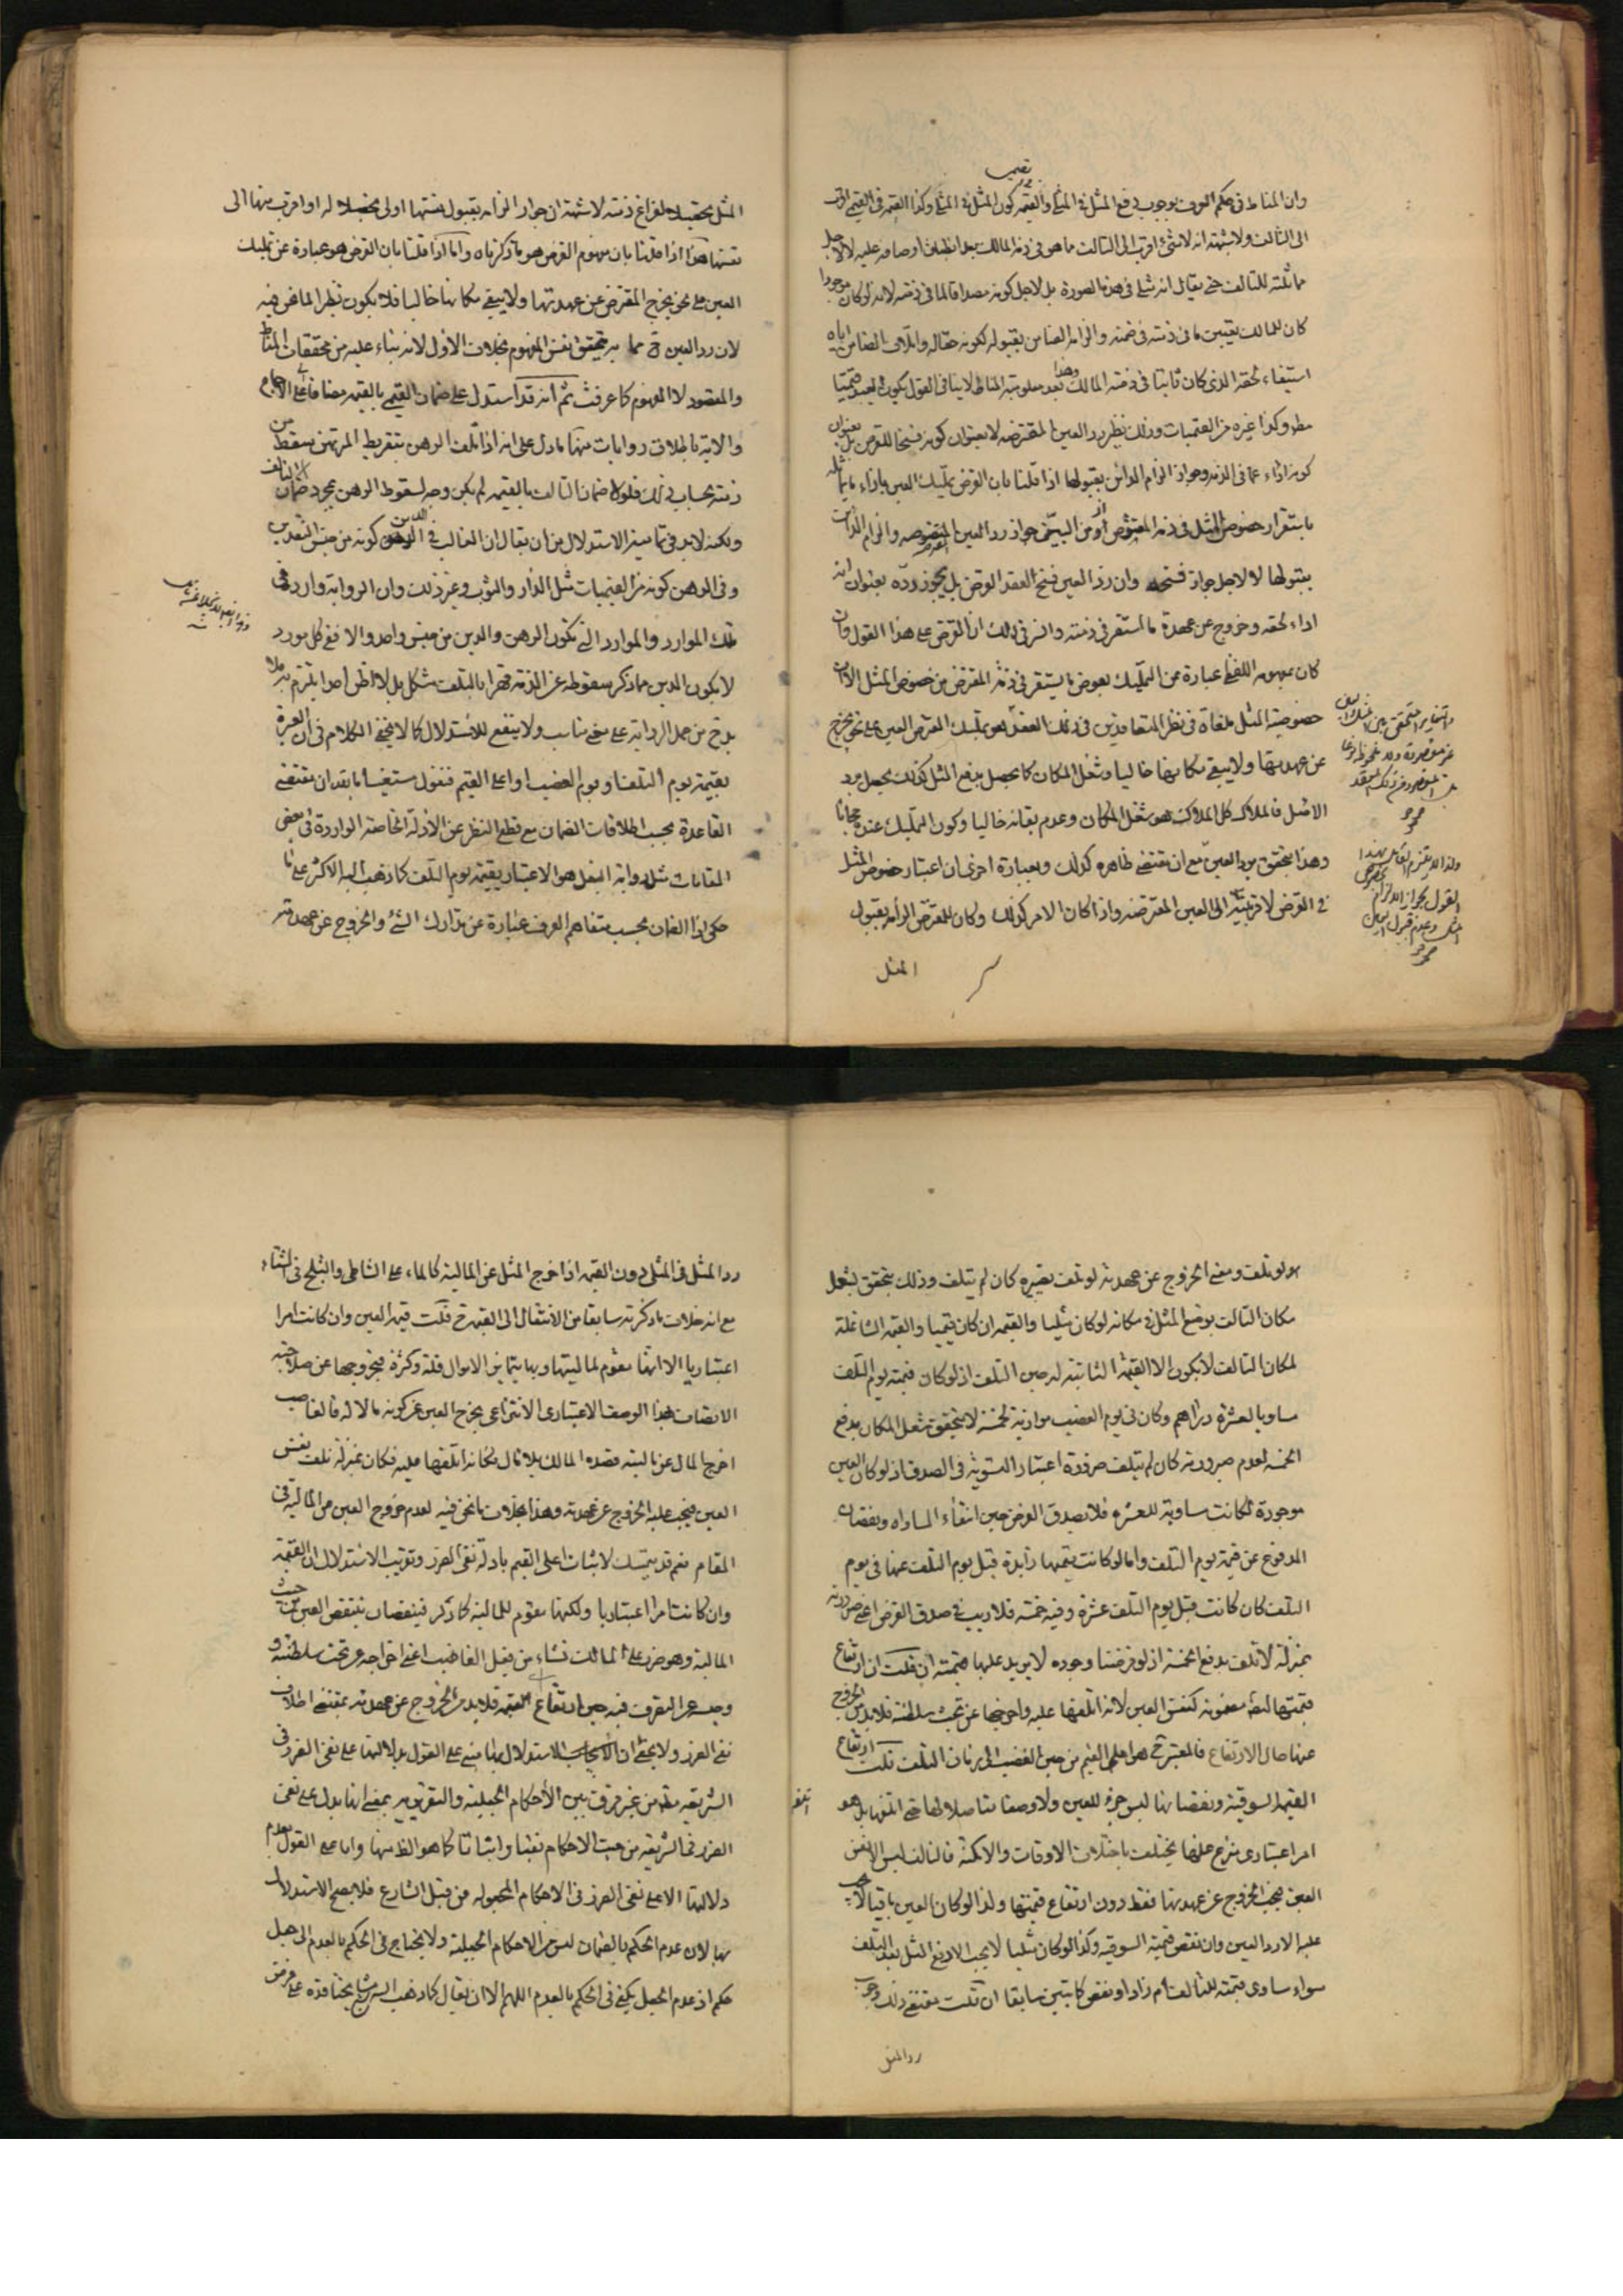 وان المناط فى حكم العرف بوجوب دفع المثل فى المثلى والقيمة كون المثل فى المثلى وكذا القيمة فى القيمى اقرب
الى التالف ولا شبهة انه لا شئ اقرب الى التالف مما هو فى ذمة المالك بعد انطباق اوصافه عليه لا لاجل
مماثلته للتالف حتى يقال انه مثلى فى هذه الصورة بل لاجل كونه مصداقا لما فى ذمته لانه لو كان موجودا
كان للمالك تعيين ما فى ذمته فى ضمنه والزام الضامن بقبوله لكونه حقا له واتلاف الضامن اياه
استيفاء لحقه الذى كان ثابتا فى ذمة المالك وهذا بعد معلومية المناط لا ينافى القول بكون العبد قيميا
مطلقا وكذا غيره من القيميات وذلك نظير رد العين المقترضة لا بعنوان كونه فسخا للقرض بل بعنوان
كونه اداء عما فى الذمة وجواز الزام الدائن بقبولها اذا قلنا بان القرض تمليك العين بازاء ما يماثله
باستقرار خصوص المثل فى ذمة المقترض اذ من البين جواز رد العين المقترضة والزام الدائن
بقبولها لا لاجل جواز فسخه وان رد العين فسخ لعقد القرض بل يجوز رده بعنوان انه
اداء لحقه وخروج عن عهدة ما استقر فى ذمته والسر فى ذلك ان القرض على هذا القول وان
كان بمفهومه اللفظى عبارة عن التمليك بعوض ما يستقر فى ذمة المقترض من خصوص المثل الا ان
خصوصية المثل ملغاة فى نظر المتعاقدين فى ذلك العقد بل هو تمليك المقرض العين على نحو يخرج
عن عهدتها ولا يبقى مكانها خاليا وشغل المكان كما يحصل بدفع المثل كذلك يحصل برد
الاصل فالملاك كل الملاك هو شغل المكان وعدم بقائه خاليا وكون التمليك عنده مجانا
وهذا يتحقق برد العين مع ان مقتضى ظاهره كذلك وبعبارة اخرى ان اعتبار خصوص المثل
فى القرض لاقربيته الى العين المقترضة واذا كان الامر كذلك وكان للمقترض الزامه بقبول
المثل
المثل تحصيلا لفراغ ذمته لا شبهة ان جواز الزامه بقبول نفسها اولى تحصيلا له او اقرب منها الى
نفسها هذا اذا قلنا بان مفهوم القرض هو ما ذكرناه واما اذا قلنا بان القرض هو عبارة عن تمليك
العين على نحو يخرج المقترض عن عهدتها ولا يبقى مكانها خاليا فلا يكون نظيرا لما نحن فيه
لان رد العين ح مما به يتحقق نفس المفهوم بخلاف الاول لانه بناء عليه من محققات المناط
والمقصود لا المفهوم كما عرفت ثم انه قد استدل على ضمان القيمى بالقيمة مضافا الى الاجماع
والاية باطلاق روايات منها ما دل على انه اذا تلف الرهن بتفريط المرتهن سقط من
ذمته بحساب ذلك فلولا ضمان التالف بالقيمة لم يكن وجه لسقوط الرهن بمجرد ضمان التالف
ولكنه لابد فى تمامية الاستدلال من ان يقال ان الغالب فى الدين كونه من جنس النقدين
وفى الرهن كونه من القيميات مثل الدار والثوب وغير ذلك وان الرواية واردة فى
تلك الموارد والموارد التى تكون الرهن والدين من جنس واحد والا ففى كل مورد
لا يكون الدين مما ذكر سقوطه عن الذمة قهرا بالتلف مشكل بل لا اظن احدا يلتزم به فلا
بد ح من حمل الرواية على معنى مناسب ولا ينفع للاستدلال كما لا يخفى الكلام فى ان العبرة
بقيمة يوم التلف او يوم الغصب او اعلى القيم فنقول مستعينا بالله ان مقتضى
القاعدة بحسب اطلاقات الضمان مع قطع النظر عن الادلة الخاصة الواردة فى بعض
المقامات مثل رواية البغل هو الاعتبار بقيمة يوم التلف كما ذهب اليه الاكثر على ما
حكى اذ الضمان بحسب متفاهم العرف عبارة عن تدارك الشئ والخروج عن عهدته
لو تلف ومعنى الخروج عن عهدته لو تلف تصييره كان لم يتلف وذلك يتحقق بشغل
مكان التالف بوضع المثل فى مكانه لو كان مثليا والقيمة ان كان قيميا والقيمة الشاغلة
لمكان التالف لا يكون الا القيمة الثابتة له حين التلف اذ لو كان قيمته يوم التلف
مساويا لعشرة دراهم وكان فى يوم الغصب موازية لخمسة لا يتحقق شغل المكان بدفع
الخمسة لعدم صيرورته كان لم يتلف ضرورة اعتبار التسوية فى الصدق اذ لو كان العين
موجودة لكانت مساوية للعشرة فلا يصدق الفرض حين انتفاء المساواة ونقصان
المدفوع عن قيمة يوم التلف واما لو كانت قيمتها زايدة قبل يوم التلف عنها فى يوم
التلف كان كانت قبل يوم التلف عشرة وفيه خمسة فلا ريب فى صدق الفرض اعنى صيرورته
بمنزلة لا تلف بدفع الخمسة اذ لو فرضنا وجوده لا يزيد عليها قيمته ان قلت ان ارتفاع
قيمتها ايضا مضمونة كنفس العين لانه اتلفها عليه واخرجها عن تحت سلطنته فلابد من الخروج
عنها حال الارتفاع فالمعتبر ح هو اعلى القيم من حين الغصب الى زمان التلف قلت ارتفاع
القيمة السوقية ونقصانها ليس جزء للعين ولا وصفا متاصلا لها حتى اتلفها بل هو
امر اعتبارى ينتزع عنها يختلف باختلاف الاوقات والامكنة فالتالف ليس الا نفس
العين فيجب الخروج عن عهدتها فقط دون ارتفاع قيمتها ولذا لو كان العين باقيا لا يجب
عليه الا رد العين وان نقص قيمته السوقية وكذا لو كان مثليا لا يجب الا دفع المثل بعد التلف
سواء ساوى قيمته للتالف ام زاد او نقص كما تبين سابقا ان قلت مقتضى ذلك وجوب
رد المثل
رد المثل فى المثلى دون القيمة اذا خرج المثل عن المالية كالماء على الشاطى والثلج فى الشتاء
مع انه خلاف ما ذكرته سابقا من الانتقال الى القيمة ح قلت قيمة العين وان كانت امرا
اعتباريا الا انها مقوم لماليتها وبها يتمايز الاموال قلة وكثرة فبخروجها عن صلاحية
الاتصاف بهذا الوصف الاعتبارى الانتزاعى يخرج العين عن كونه مالا له فالغاصب
اخرج المال عن ماليته فصده المالك بلا مال فكانه اتلفها عليه فكان بمنزلة تلف نفس
العين فيجب عليه الخروج عن عهدته وهذا بخلاف ما نحن فيه لعدم خروج العين من المالية فى
المقام نعم قد يتمسك لاثبات اعلى القيم بادلة نفى الضرر وتقريب الاستدلال ان القيمة
وان كانت امرا اعتباريا ولكنها مقوم للمالية كما ذكر فبنقصان ينتقص العين من حيث
المالية وهو ضرر على المالك نشاء من فعل الغاصب اعنى اخراجه عن تحت سلطنته و
التصرف فيه حين ارتفاع القيمة فلابد من الخروج عن عهدته بمقتضى اطلاق
نفى الضرر ولا يخفى ان الاستدلال بها مبنى على القول بدلالتها على نفى الضرر فى
الشريعة مطلقا من غير فرق بين الأحكام الجعلية والتقريرية بمعنى انها يدل على نفى
الضرر فى الشريعة من حيث الاحكام نفيا واثباتا كما هو الظ منها واما على القول بعدم
دلالتها الا على نفى الضرر فى الاحكام المجعولة من قبل الشارع فلا يصح الاستدلال
بها لان عدم الحكم بالضمان ليس من الاحكام الجعلية ولا يحتاج فى الحكم بالعدم الى جعل
حكم اذ عدم الجعل يكفى فى الحكم بالعدم اللهم الا ان يقال كما ذهب اليه بعض مشايخنا قده على فرض